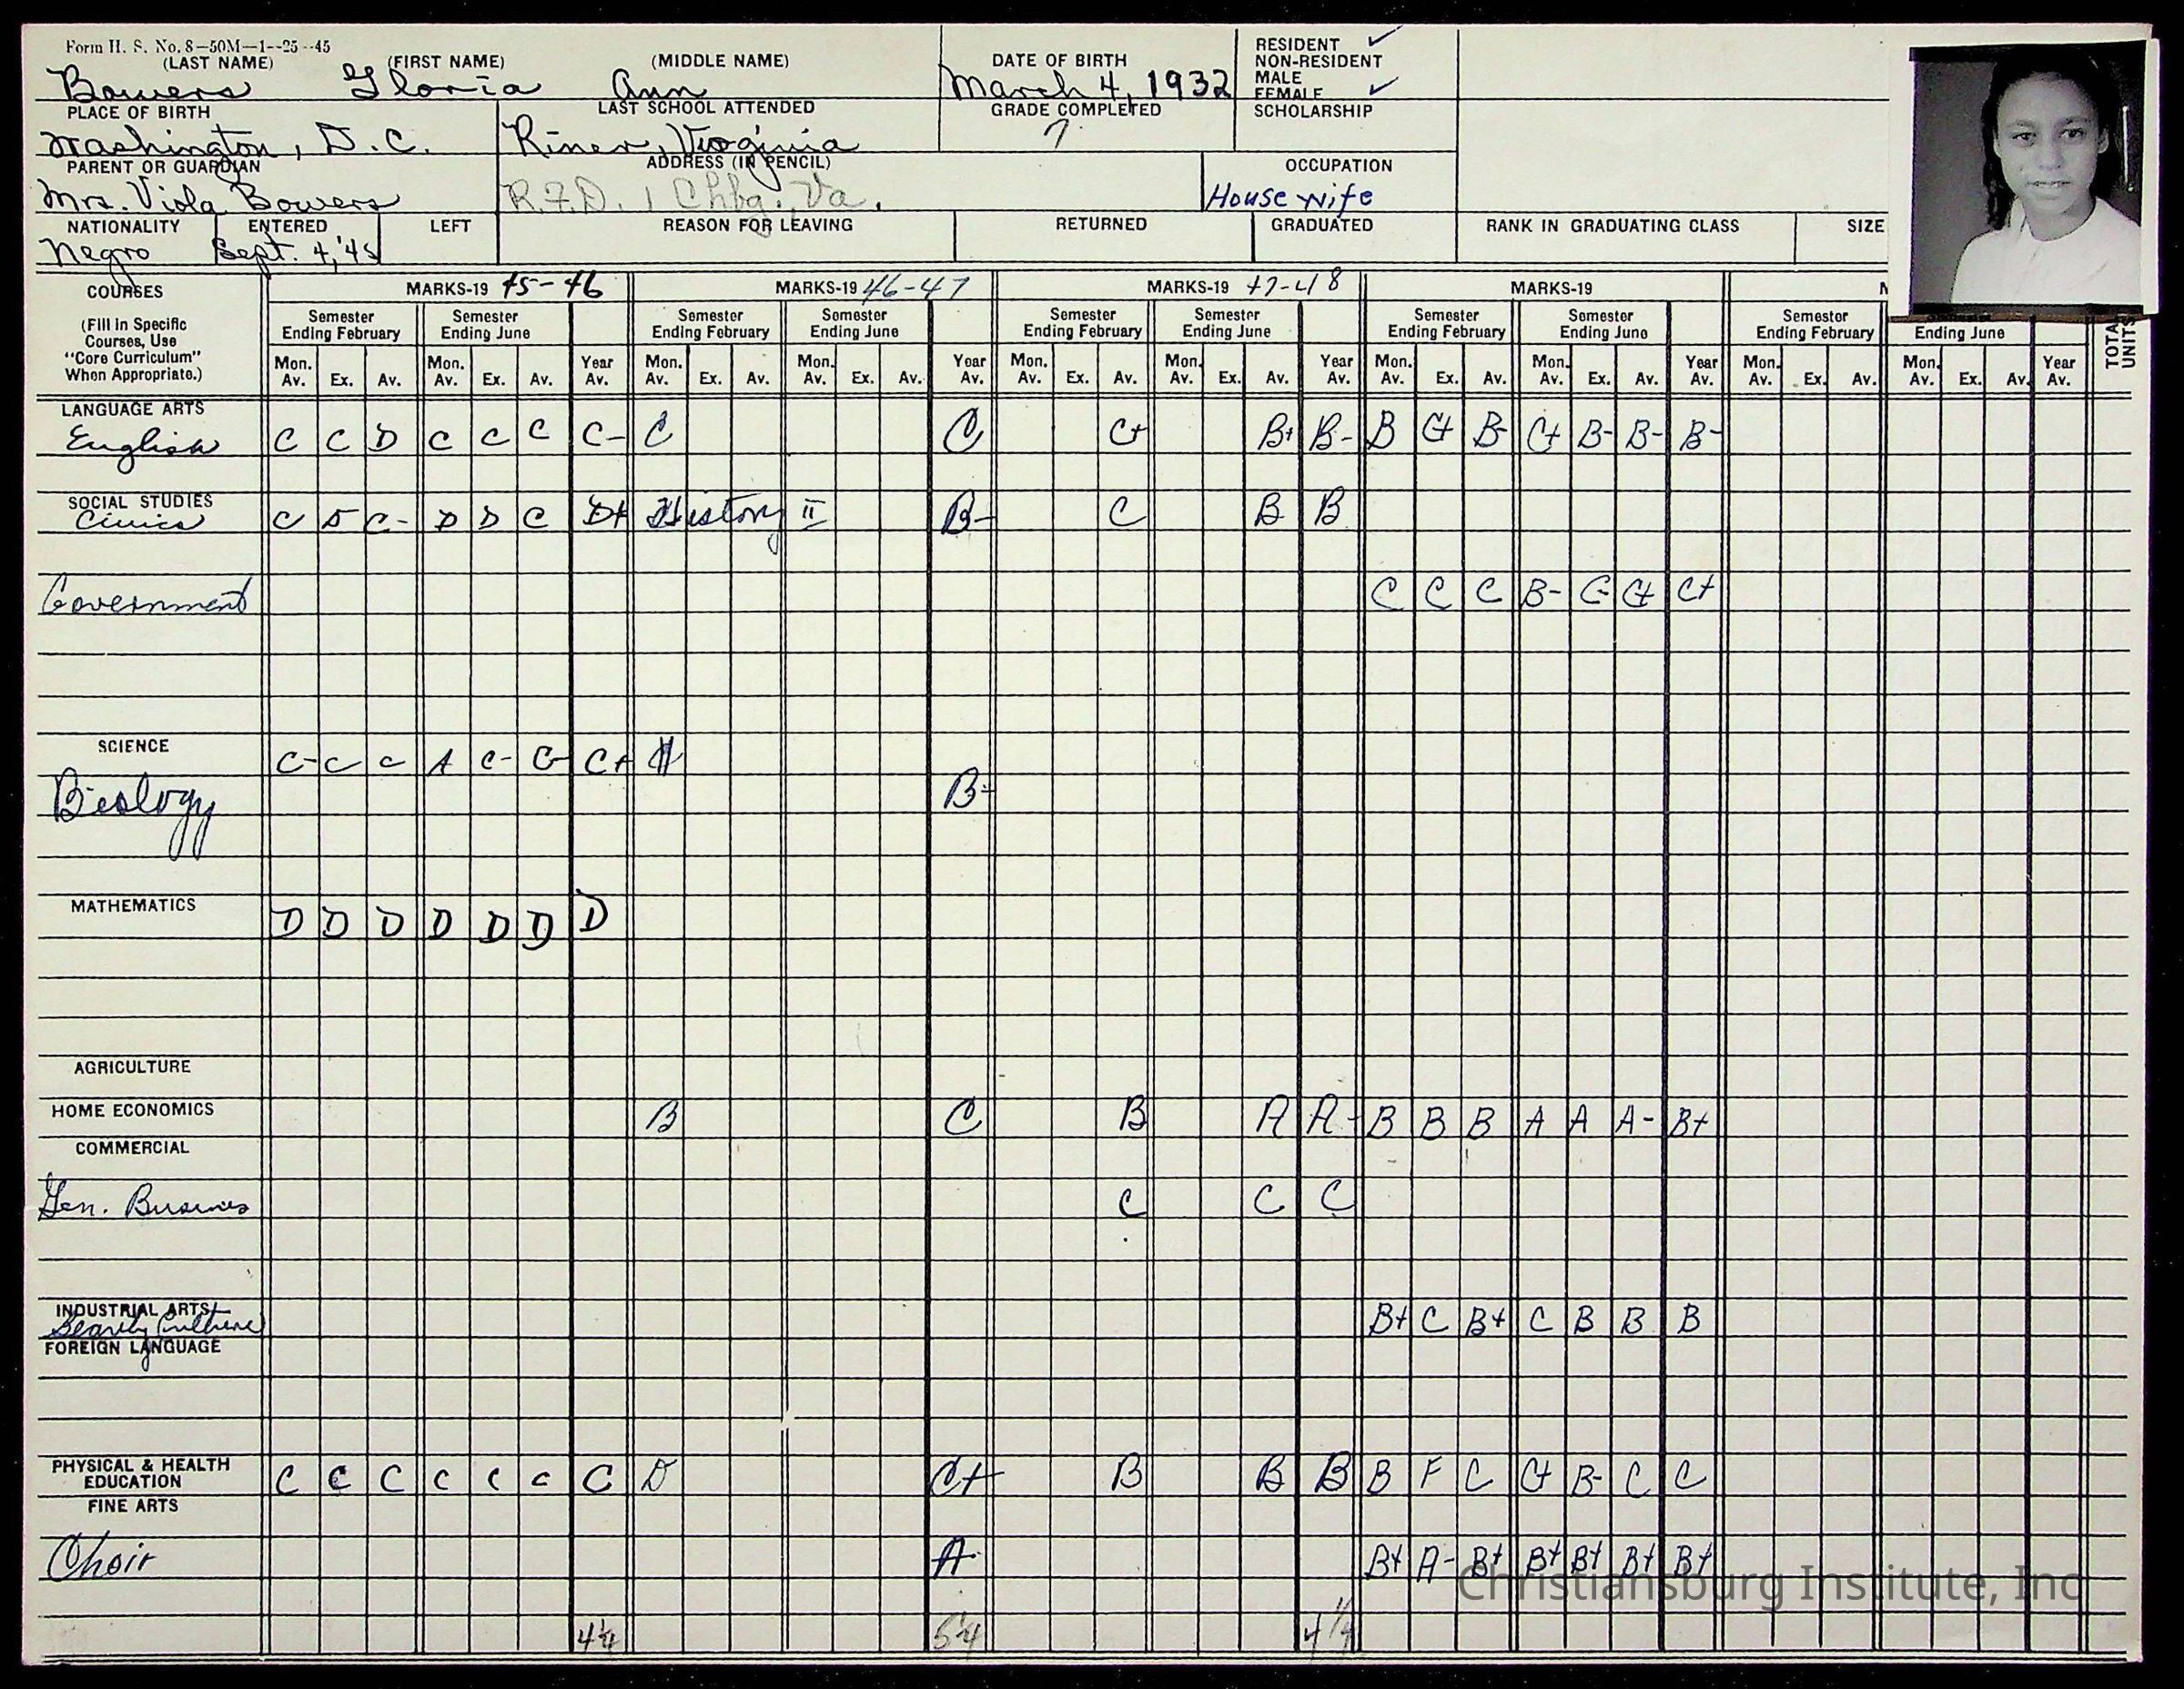 Form H. S. No. 8—50M—1--25--45
(LAST NAME) (FIRST NAME) (MIDDLE NAME) DATE OF BIRTH RESIDENT ✓
NON-RESIDENT
Bowers Gloria Ann March 4, 1932 MALE
FEMALE ✓
PLACE OF BIRTH LAST SCHOOL ATTENDED GRADE COMPLETED SCHOLARSHIP
Washington, D.C. Riner, Virginia 7
PARENT OR GUARDIAN ADDRESS (IN PENCIL) OCCUPATION
Mrs. Viola Bowers R.F.D. 1 Chbg. Va. House wife
NATIONALITY ENTERED LEFT REASON FOR LEAVING RETURNED GRADUATED RANK IN GRADUATING CLASS SIZE
Negro Sept. 4, '45
COURSES MARKS-19 45-46 MARKS-19 46-47 MARKS-19 47-48 MARKS-19
(Fill In Specific Semester Semester Semester Semester Semester Semester Semester Semester Semester
Courses, Use Ending February Ending June Ending February Ending June Ending February Ending June Ending February Ending June Ending February Ending June
"Core Curriculum"
When Appropriate.)
Mon. Av. Ex. Av. Mon. Av. Ex. Av. Year Av. Mon. Av. Ex. Av. Mon. Av. Ex. Av. Year Av. Mon. Av. Ex. Av. Mon. Av. Ex. Av. Year Av. Mon. Av. Ex. Av. Mon. Av. Ex. Av. Year Av. Mon. Av. Ex. Av. Mon. Av. Ex. Av. Year Av. TOTAL UNITS
LANGUAGE ARTS
English C C D C C C C- C C C+ B+ B- B C+ B- C+ B- B- B-
SOCIAL STUDIES
Civics C D C- D D C D+ History II B- C B B
Government C C C B- C- C+ C+
SCIENCE C- C C A C- C- C+
Biology B-
MATHEMATICS D D D D D D D
AGRICULTURE
HOME ECONOMICS B C B A A- B B B A A A- B+
COMMERCIAL
Gen. Business C C C
INDUSTRIAL ARTS
Beauty Culture B+ C B+ C B B B
FOREIGN LANGUAGE
PHYSICAL & HEALTH
EDUCATION C C C C C C C D C+ B B B B F C C+ B- C C
FINE ARTS
Choir A B+ A- B+ B+ B+ B+ B+
Christiansburg Institute, Inc
4¼ 5¼ 4¼